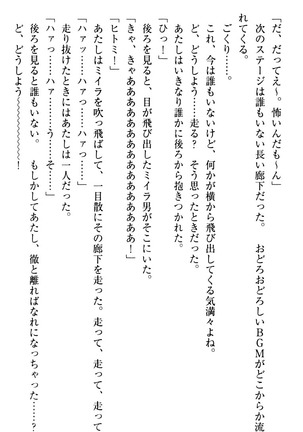 「だ、だってえ～。怖いんだも～ん」
次のステージは誰もいない長い廊下だった。　おどろおどろしいＢＧＭがどこからか流
れてくる。
ごくり……。
これ、今は誰もいないけど、何かが横から飛び出してくる気満々よね。
ど、どうしよう……走る？　そう思ったときだった。
あたしはいきなり誰かに後ろから抱きつかれた。
「ひっ！」
後ろを見ると、目が飛び出したミイラ男がそこにいた。
「きゃ、きゃああああああああああ！」
「ヒトミ！」
あたしはミイラを吹っ飛ばして、一目散にその廊下を走った。走って、走って、走って
走り抜けたときにはあたしは一人だった。
「ハァっ……ハァっ……ハァっ……」
「ハァっ……ハァっ……う……そ……」
後ろを見ると誰もいない。　もしかしてあたし、徹と離ればなれになっちゃった……？
ど、どうしよう～～～～～～！